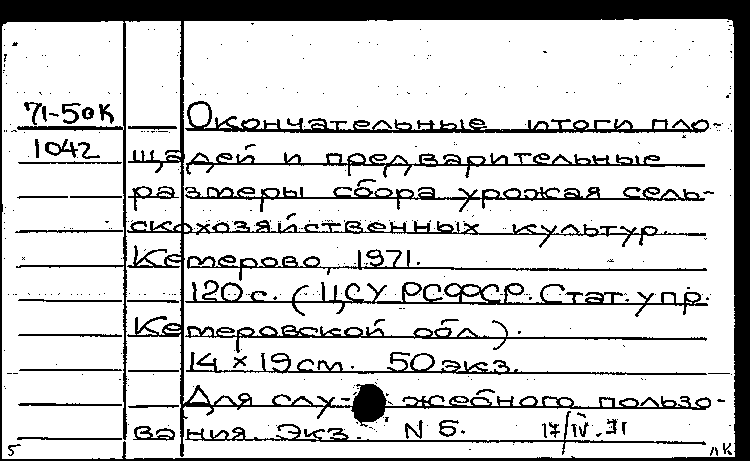 71-5ок Окончательные итоги пло-
1042 щадей и предварительные
размеры сбора урожая сель-
скохозяйственных культур.
Кемерово, 1971.
120 с. (ЦСУ РСФСР. Стат. упр.
Кемеровской обл.).
14 x 19 см. 50 экз.
Для слу- жебного пользо-
вания. Экз. N 5. 17/IV-71
5 лк